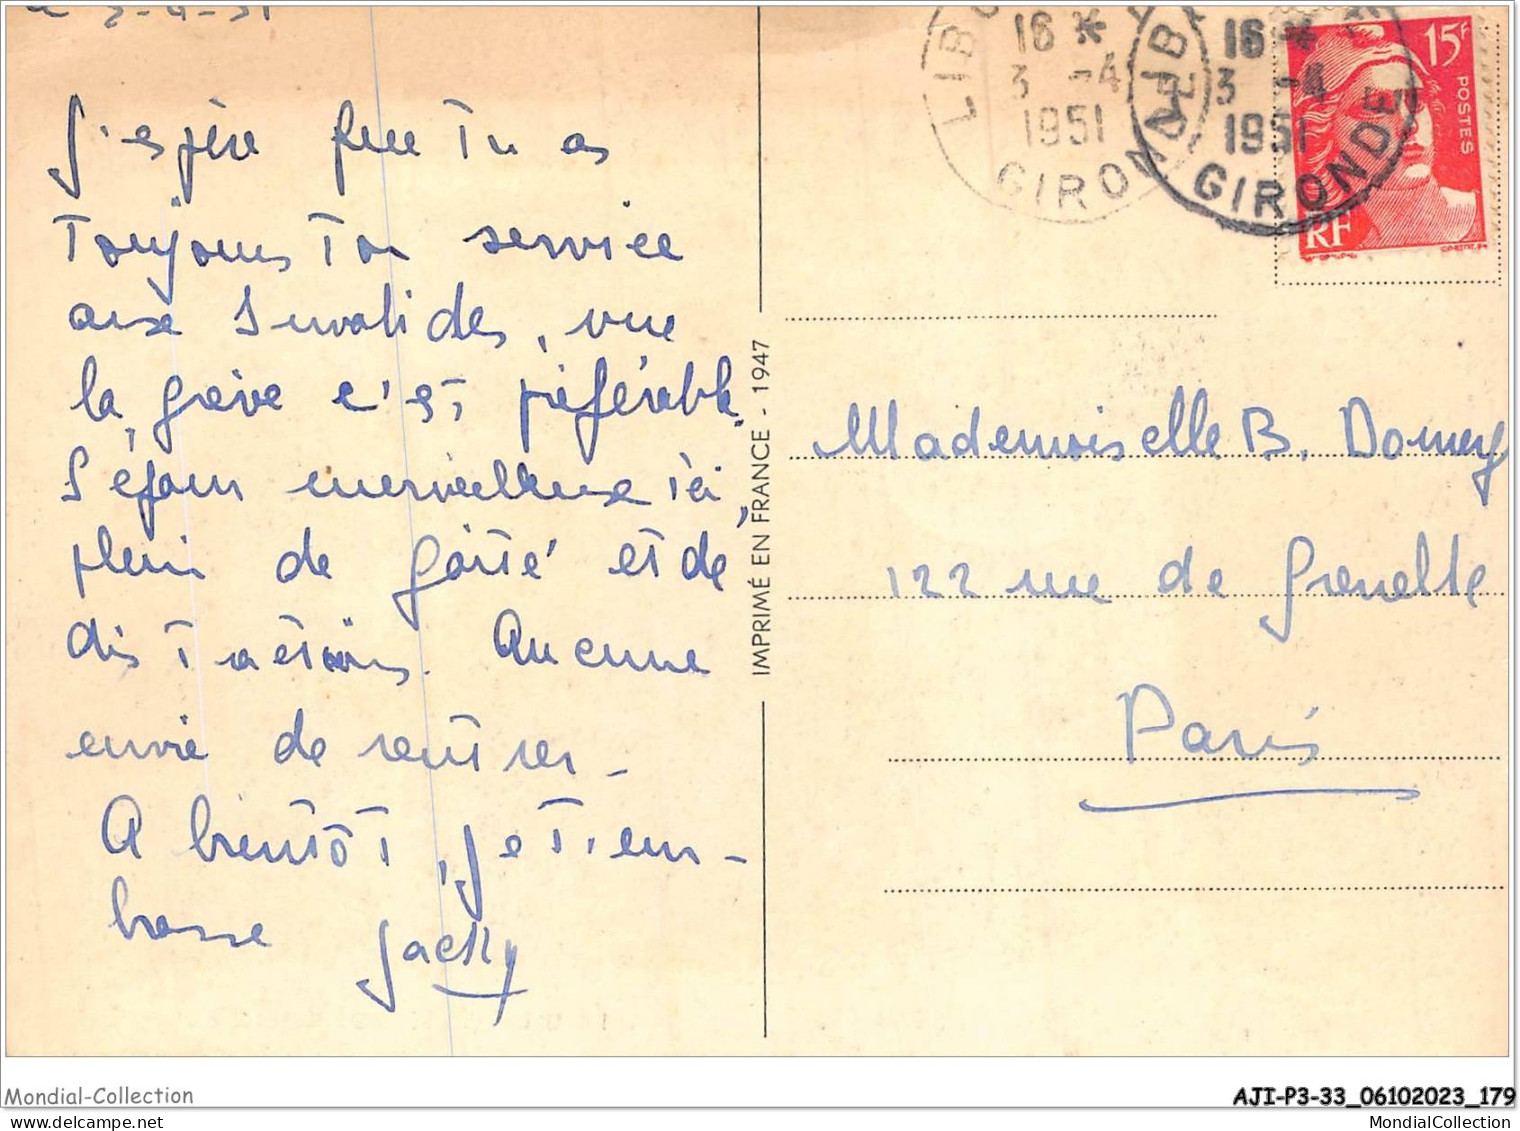 3-4-51
J'espère que tu as
toujours ton service
aux Invalides, vue
la grève c'est préférable.
Séjour merveilleux ici,
plein de gaité et de
distractions. Aucune
envie de rentrer -
A bientôt, je t'em-
brasse Jacky
IMPRIMÉ EN FRANCE - 1947
LIB
16 *
3 -4
1951
GIRONDE
LIB
16 *
3 -4
1951
GIRONDE
15F
POSTES
RF
Mademoiselle B. Domery
122 rue de Grenelle
Paris
Mondial-Collection
AJI-P3-33_06102023_179
MondialCollection